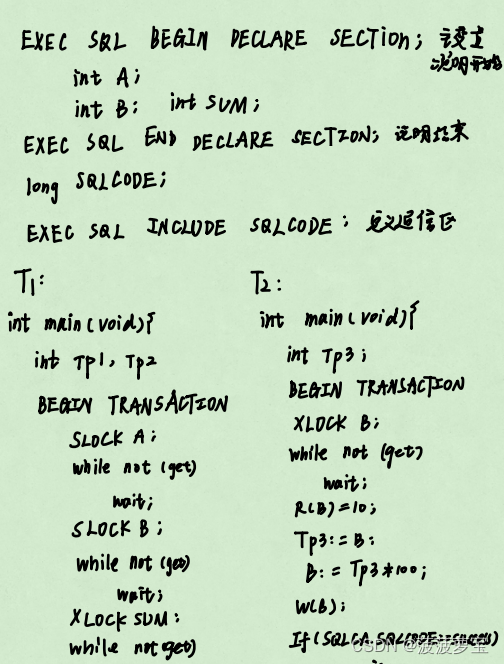 EXEC SQL BEGIN DECLARE SECTION; 变量
说明开始
int A;
int B; int SUM;
EXEC SQL END DECLARE SECTION; 说明结束
long SQLCODE;
EXEC SQL INCLUDE SQLCODE; 定义通信区
T1:
int main(void){
int Tp1, Tp2
BEGIN TRANSACTION
SLOCK A;
while not (get)
wait;
SLOCK B;
while not (get)
wait;
XLOCK SUM:
while not (get)
T2:
int main(void){
int Tp3;
BEGIN TRANSACTION
XLOCK B;
while not (get)
wait;
R(B)=10;
Tp3:=B:
B:=Tp3*100;
W(B);
If(SQLCA.SQLCODE==success)
CSDN @波波萝宝